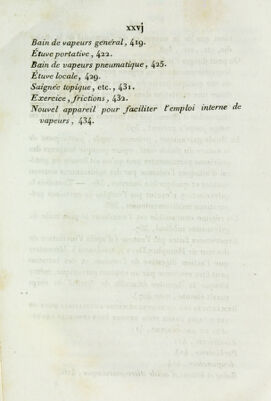 xxvj
Bain de vapeurs général, 419.
Étuve portative, 422.
Bain de vapeurs pneumatique, 425.
Étuve locale, 429.
Saignée topique, etc., 431.
Exercice, frictions, 432.
Nouvel appareil pour faciliter l'emploi interne de
vapeurs, 434.